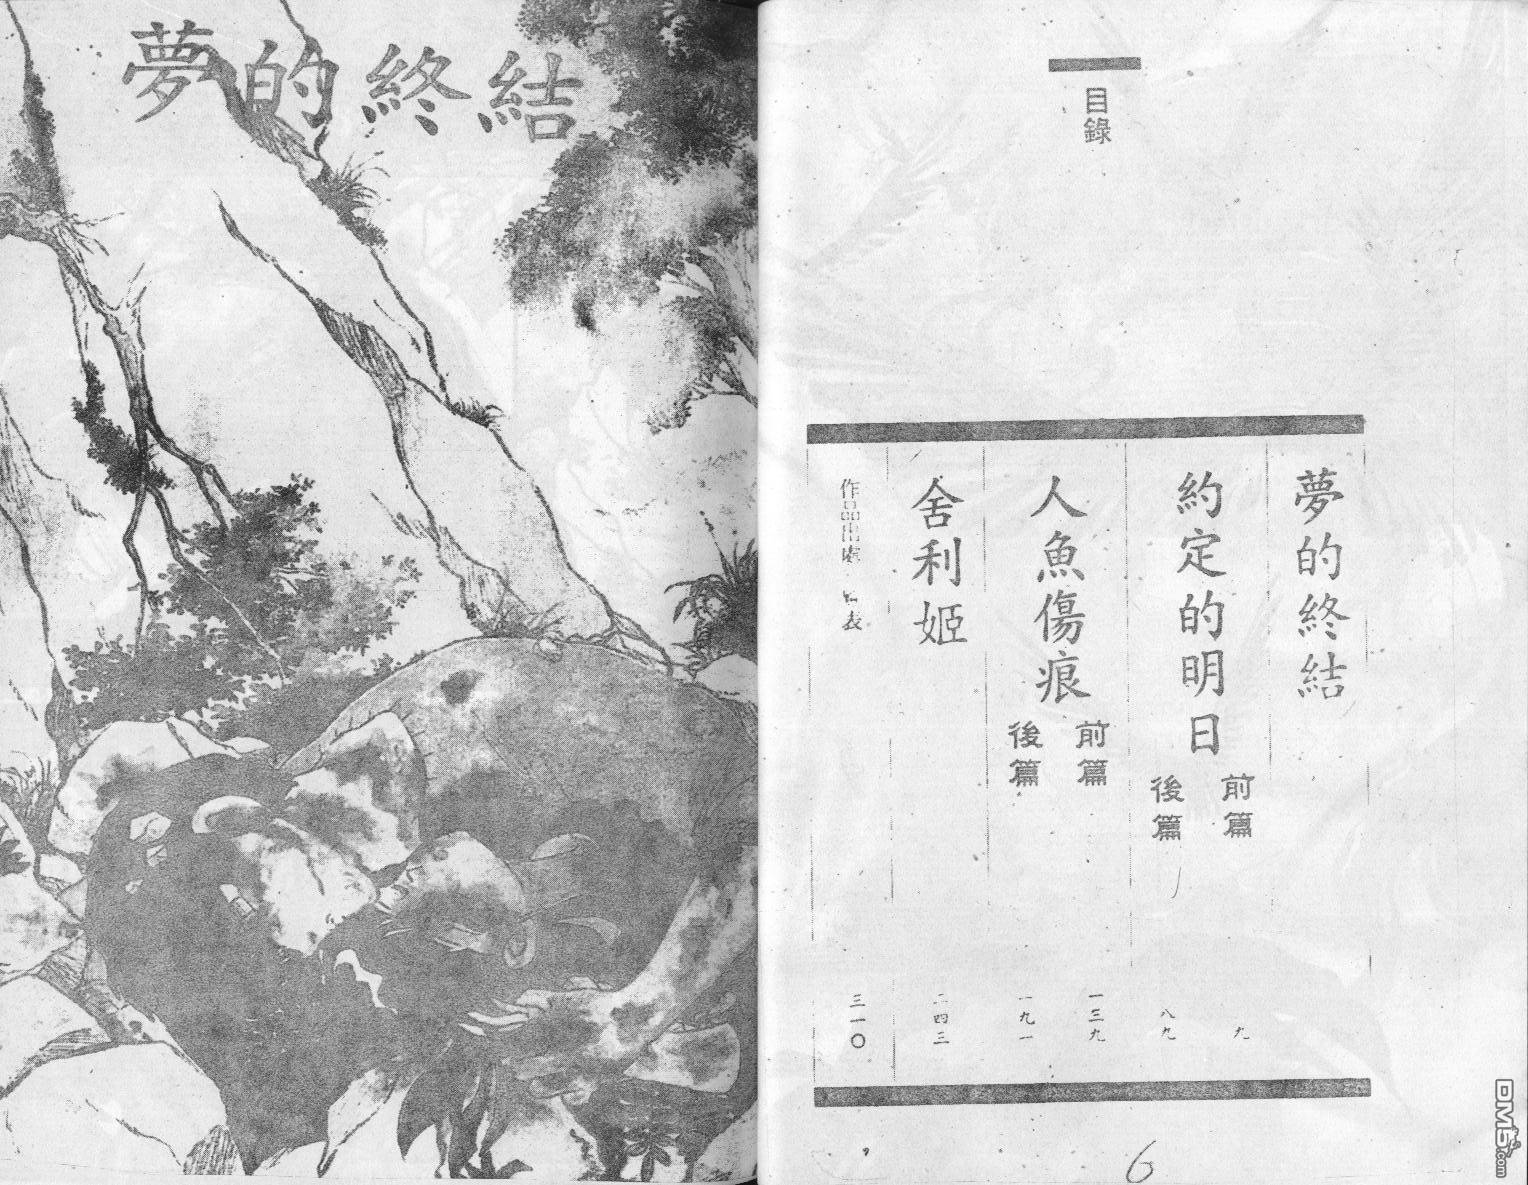 夢的終結
目錄
夢的終結
約定的明日
前篇
後篇
人魚傷痕
前篇
後篇
舍利姬
作品出處 表
九
八九
一三九
一九一
二四三
三一〇
6
DM5.com